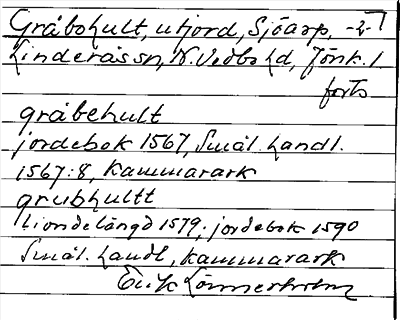 Gråbohult, utjord, Sjöarp, -2-
Linderås sn, N. Vedbo hd, Jönk. l.
forts
gråbehult
jordebok 1567, Smål. handl.
1567:8, Kammarark
grubhultt
tiondelängd 1579; jordebok 1590
Smål. handl, Kammarark
Erik Lönnerholm